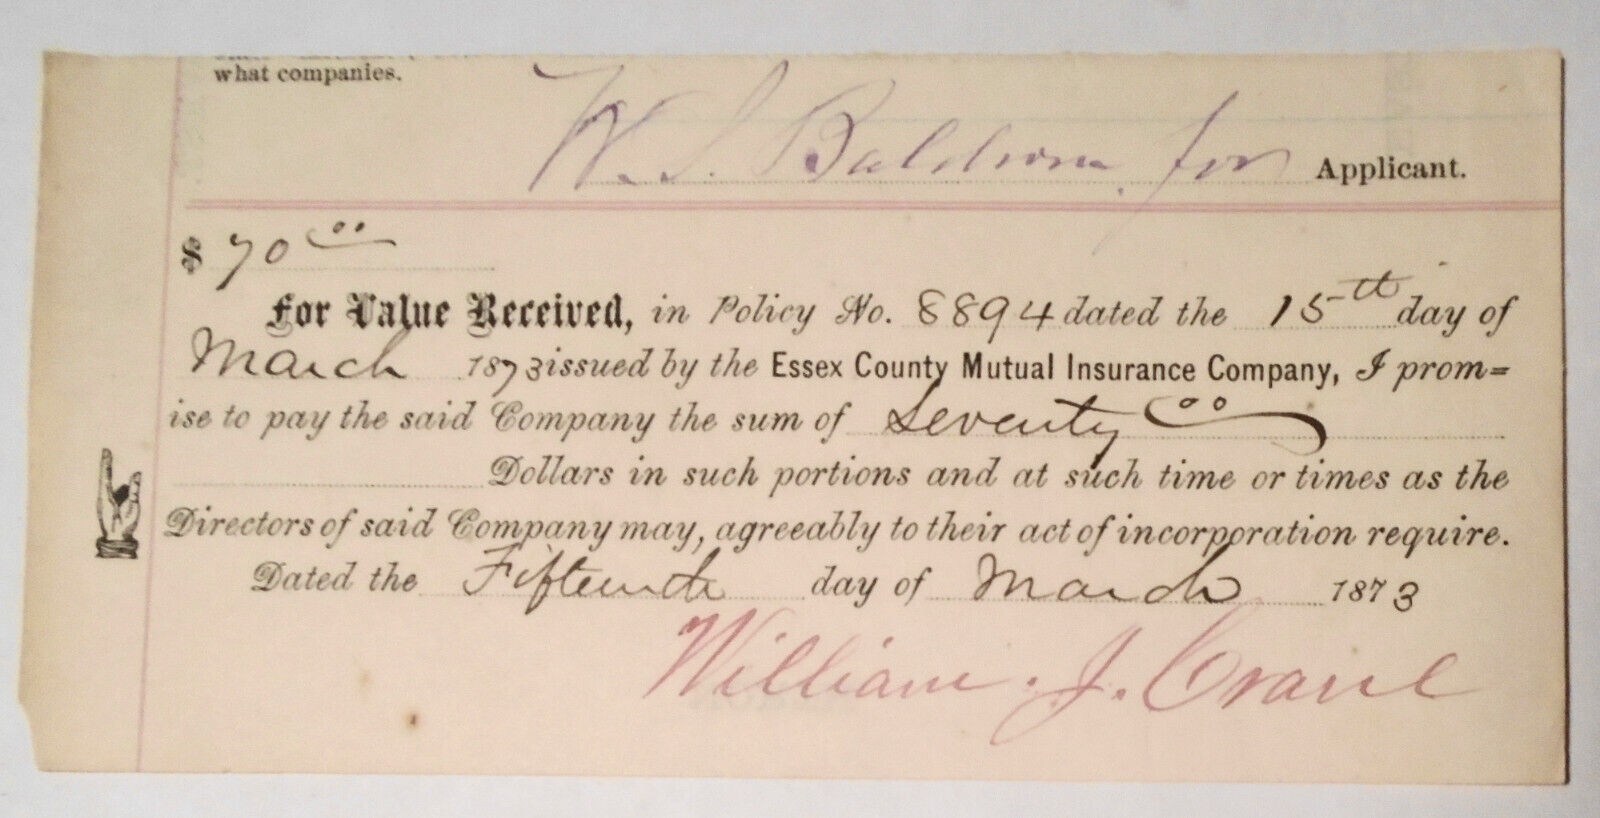 what companies.
W. S. Baldwin for Applicant.
$ 70 00
For Value Received, in Policy No. 8894 dated the 15th day of
March 1873 issued by the Essex County Mutual Insurance Company, I prom=
ise to pay the said Company the sum of Seventy 00
Dollars in such portions and at such time or times as the
Directors of said Company may, agreeably to their act of incorporation require.
Dated the Fifteenth day of March 1873
William . J. Crane